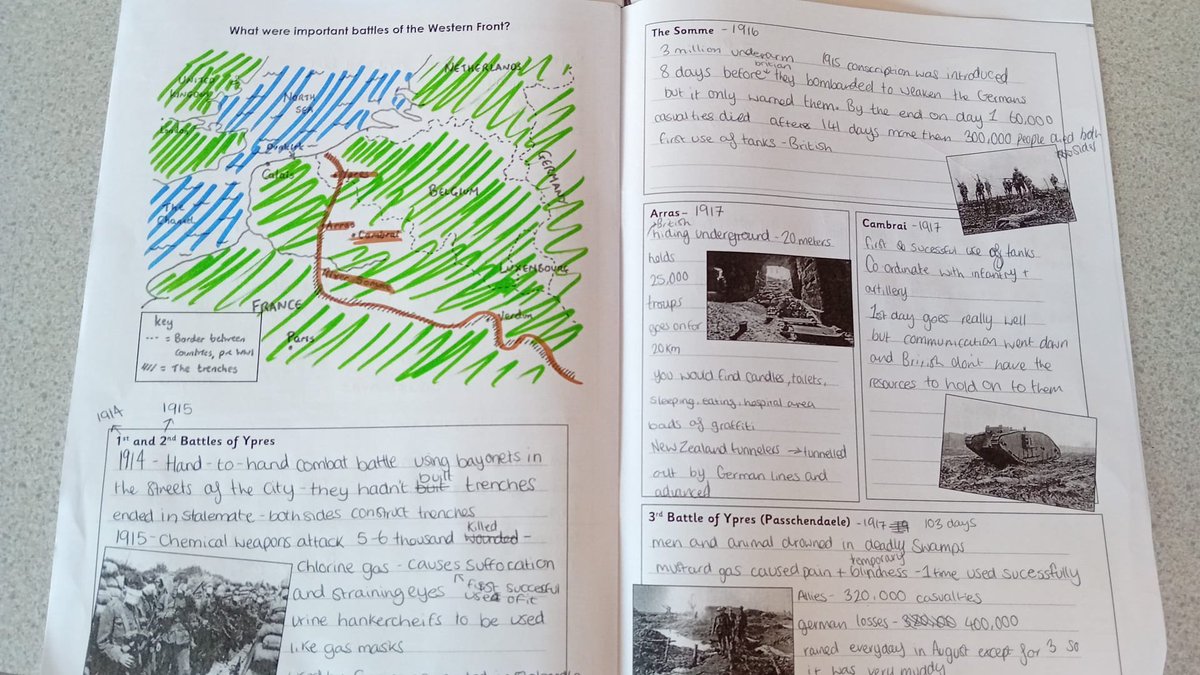 What were important battles of the Western Front?
UNITED KINGDOM
NORTH SEA
NETHERLANDS
London
Dunkirk
Calais
Ypres
BELGIUM
GERMANY
The Channel
Arras
Cambrai
LUXEMBOURG
River Somme
FRANCE
Verdun
Paris
key
--- = Border between
countries, pre WWI
= The trenches
1914
1915
1st and 2nd Battles of Ypres
1914 - Hand-to-hand combat battle using bayonets in
the streets of the city - they hadn't built trenches
ended in stalemate - both sides construct trenches
1915 - Chemical weapons attack 5-6 thousand wounded killed -
Chlorine gas - causes suffocation
and straining eyes first succesful use of it
urine hankercheifs to be used
like gas masks
The Somme - 1916
3 million underarm 1915 conscription was introduced
8 days before britian they bombarded to weaken the Germans
but it only warned them. By the end on day 1 60,000
casualties died after 141 days more than 300,000 people died both sides
first use of tanks - British
Arras - 1917
British
hiding underground - 20 meters
holds
25,000
troups
goes on for
20km
you would find candles, toilets,
sleeping, eating, hospital area
loads of graffiti
New Zealand tunnelers → tunnelled
out by German lines and
advanced
Cambrai - 1917
first sucessful use of tanks
Co ordinate with infantry +
artillery
1st day goes really well
but communication went down
and British don't have the
resources to hold on to them
3rd Battle of Ypres (Passchendaele) - 1917 103 days
men and animal drowned in deadly swamps
mustard gas caused pain + temporary blindness - 1 time used sucessfully
Allies - 320,000 casualties
german losses - 400,000
rained everyday in August except for 3 so
it was very muddy